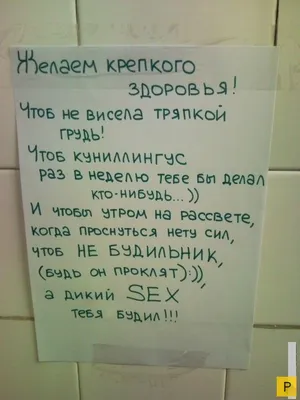 Желаем крепкого
здоровья!
Чтоб не висела тряпкой
грудь!
Чтоб куниллингус
раз в неделю тебе бы делал
кто-нибудь...))
И чтобы утром на рассвете,
когда проснуться нету сил,
чтоб НЕ БУДИЛЬНИК,
(будь он проклят):)),
а дикий SEX
тебя будил!!!
P